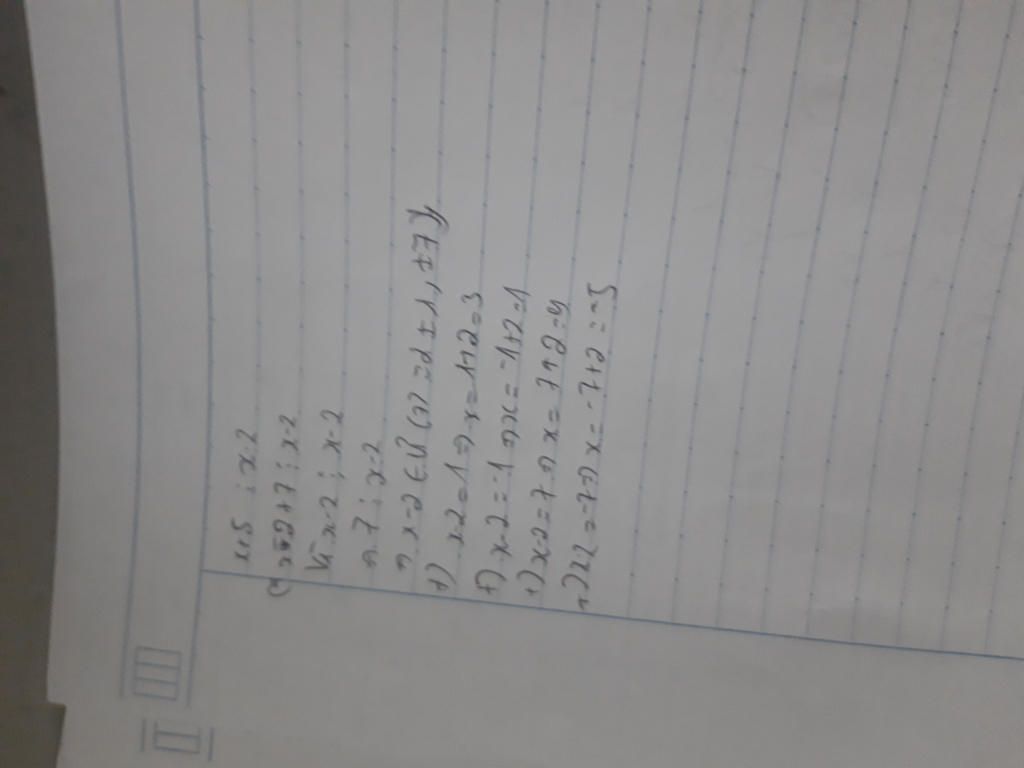 x+5 ⋮ x-2
(x-2+7 ⋮ x-2
Vì x-2 ⋮ x-2
=> 7 ⋮ x-2
=> x-2 ∈ Ư (7) = { ±1, ±7 }
+) x-2 = 1 => x = 1+2 = 3
+) x-2 = -1 => x = -1+2 = 1
+) x-2 = 7 => x = 7+2 = 9
+) x-2 = -7 => x = -7+2 = -5
III
II